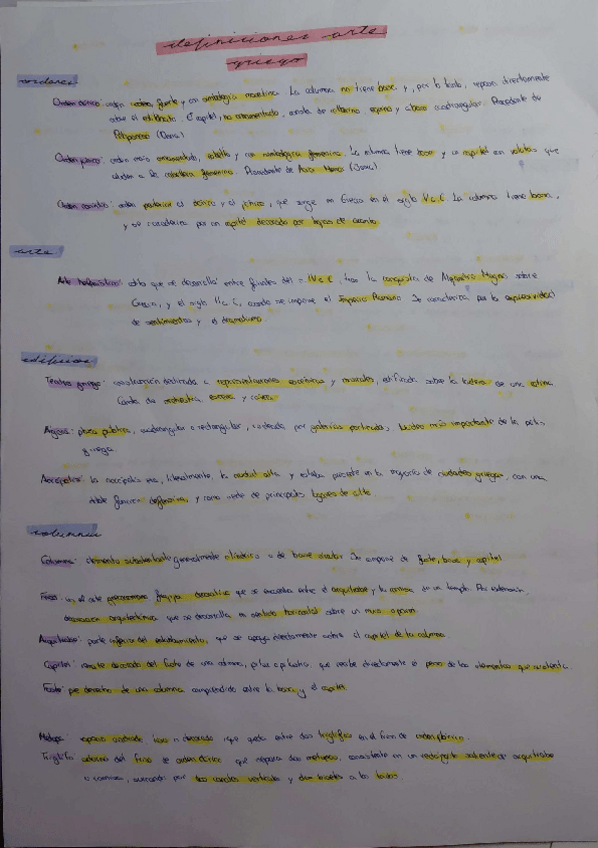 definiciones arte
griego
ordenes
Orden dórico: orden fuerte y con simbología masculina. La columna no tiene base y, por lo tanto, reposa directamente
sobre el estilobato. Capitel, no ornamentado, consta de collarino, equino y ábaco cuadrangular. Procedente de
Peloponeso (Doria)
Orden jónico: orden más ornamentado, esbelto y con simbología femenina. La columna tiene basa y un capitel con volutas que
aluden a la cabellera femenina. Procedente de Asia Menor (Jonia)
Orden corintio: orden posterior al dórico y al jónico, que surge en Grecia en el siglo V a.C. La columna tiene basa,
y se caracteriza por un capitel decorado con hojas de acanto
arte
Arte helenístico: estilo que se desarrolla entre finales del IV a.C, tras la conquista de Alejandro Magno sobre
Grecia, y el siglo II a.C, cuando se impone el Imperio Romano. Se caracteriza por la expresividad
de sentimientos y el dramatismo.
edificios
Teatro griego: construcción destinada a representaciones escénicas y musicales, edificada sobre la ladera de una colina.
Consta de orchestra, escena y cavea
Ágora: plaza pública, cuadrangular o rectangular, rodeada por galerías porticadas, núcleo más importante de la polis
griega.
Acrópolis: la acrópolis era, literalmente, la ciudad alta y estaba presente en la mayoría de ciudades griegas, con una
doble función defensiva, y como sede de principales lugares de culto
columnas
Columna: elemento sustentante generalmente cilíndrico o de base circular. Se compone de fuste, basa y capitel
Friso: en el arte grecorromano franja decorativa que se encuentra entre el arquitrabe y la cornisa de un templo. Por extensión,
decoración arquitectónica que se desarrolla en sentido horizontal sobre un muro o pared
Arquitrabe: parte inferior del entablamento, que se apoya directamente sobre el capitel de la columna.
Capitel: remate decorado del fuste de una columna, pilar o pilastra, que recibe directamente el peso de los elementos que sustenta
Fuste: pie derecho de una columna comprendido entre la basa y el capitel.
Metopa: espacio cuadrado liso o decorado que queda entre dos triglifos en el friso de orden dórico.
Triglifo: adorno del friso de orden dórico que separa dos metopas, consistente en un rectángulo saliente de arquitrabe
a cornisa, surcado por dos canales verticales y dos biseles a los lados.